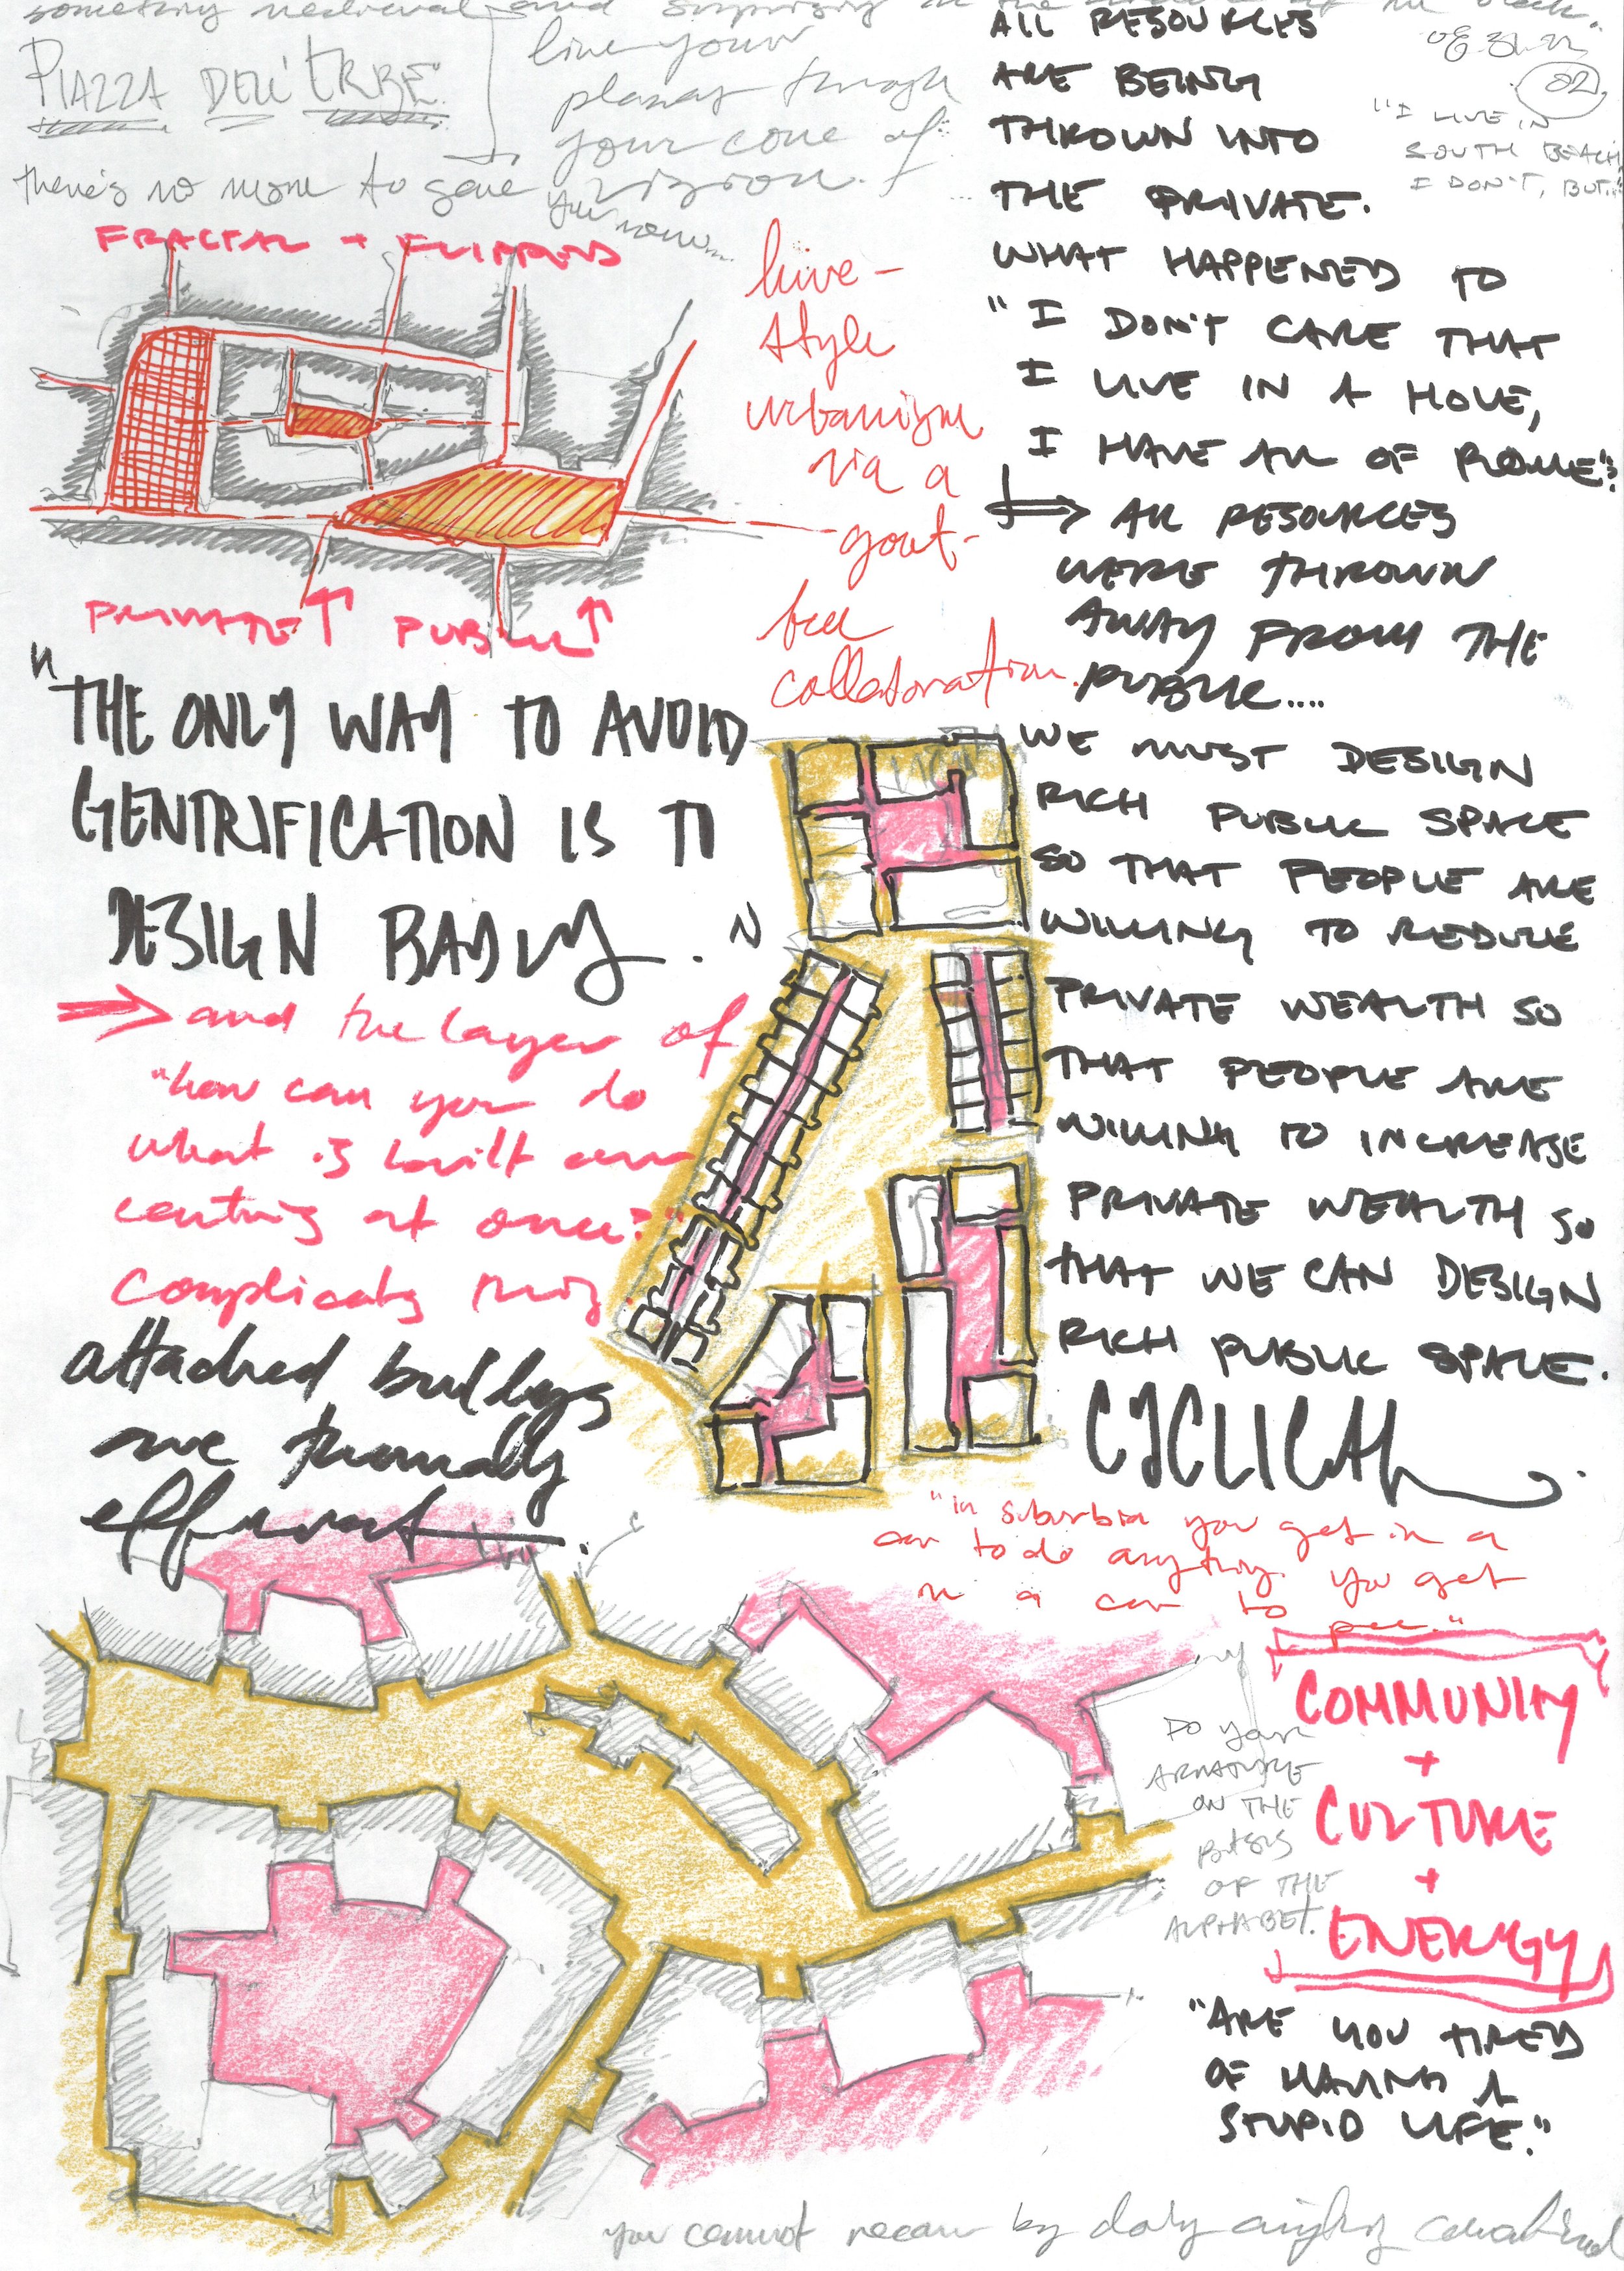 something medieval and surprising in the
PIAZZA DELL' ERBE.
line your
planes through
your cone of
vision.
there's no more to save
you now...
ALL RESOURCES
ARE BEING
THROWN INTO
THE PRIVATE.
WHAT HAPPENED TO
"I DON'T CARE THAT
I LIVE IN A HOVE,
I HAVE ALL OF ROME"?
ALL RESOURCES
WERE THROWN
AWAY FROM THE
PUBLIC....
WE MUST DESIGN
RICH PUBLIC SPACE
SO THAT PEOPLE ARE
WILLING TO REDUCE
PRIVATE WEALTH SO
THAT PEOPLE ARE
WILLING TO INCREASE
PRIVATE WEALTH SO
THAT WE CAN DESIGN
RICH PUBLIC SPACE.
CYCLICAL
02
"I LIVE IN
SOUTH BEACH
I DON'T, BUT..."
FRACTAL + FLIPPED
PRIVATE↑ PUBLIC↑
hive-
style
urbanism
via a
gout-
bee
collaboration.
"THE ONLY WAY TO AVOID
GENTRIFICATION IS TO
DESIGN BADLY."
→ and the layer of
"how can you do
what is built over
centuries at once?"
complicates things.
attached buildings
are thermally
efficient.
"in suburbia you get in a
car to do anything. You get
in a car to
pee."
COMMUNITY
+
CULTURE
+
ENERGY
DO your
ARMATURE
ON THE
BASIS
OF THE
ALPHABET.
"ARE YOU TIRED
OF HAVING A
STUPID LIFE."
you cannot by doing anything